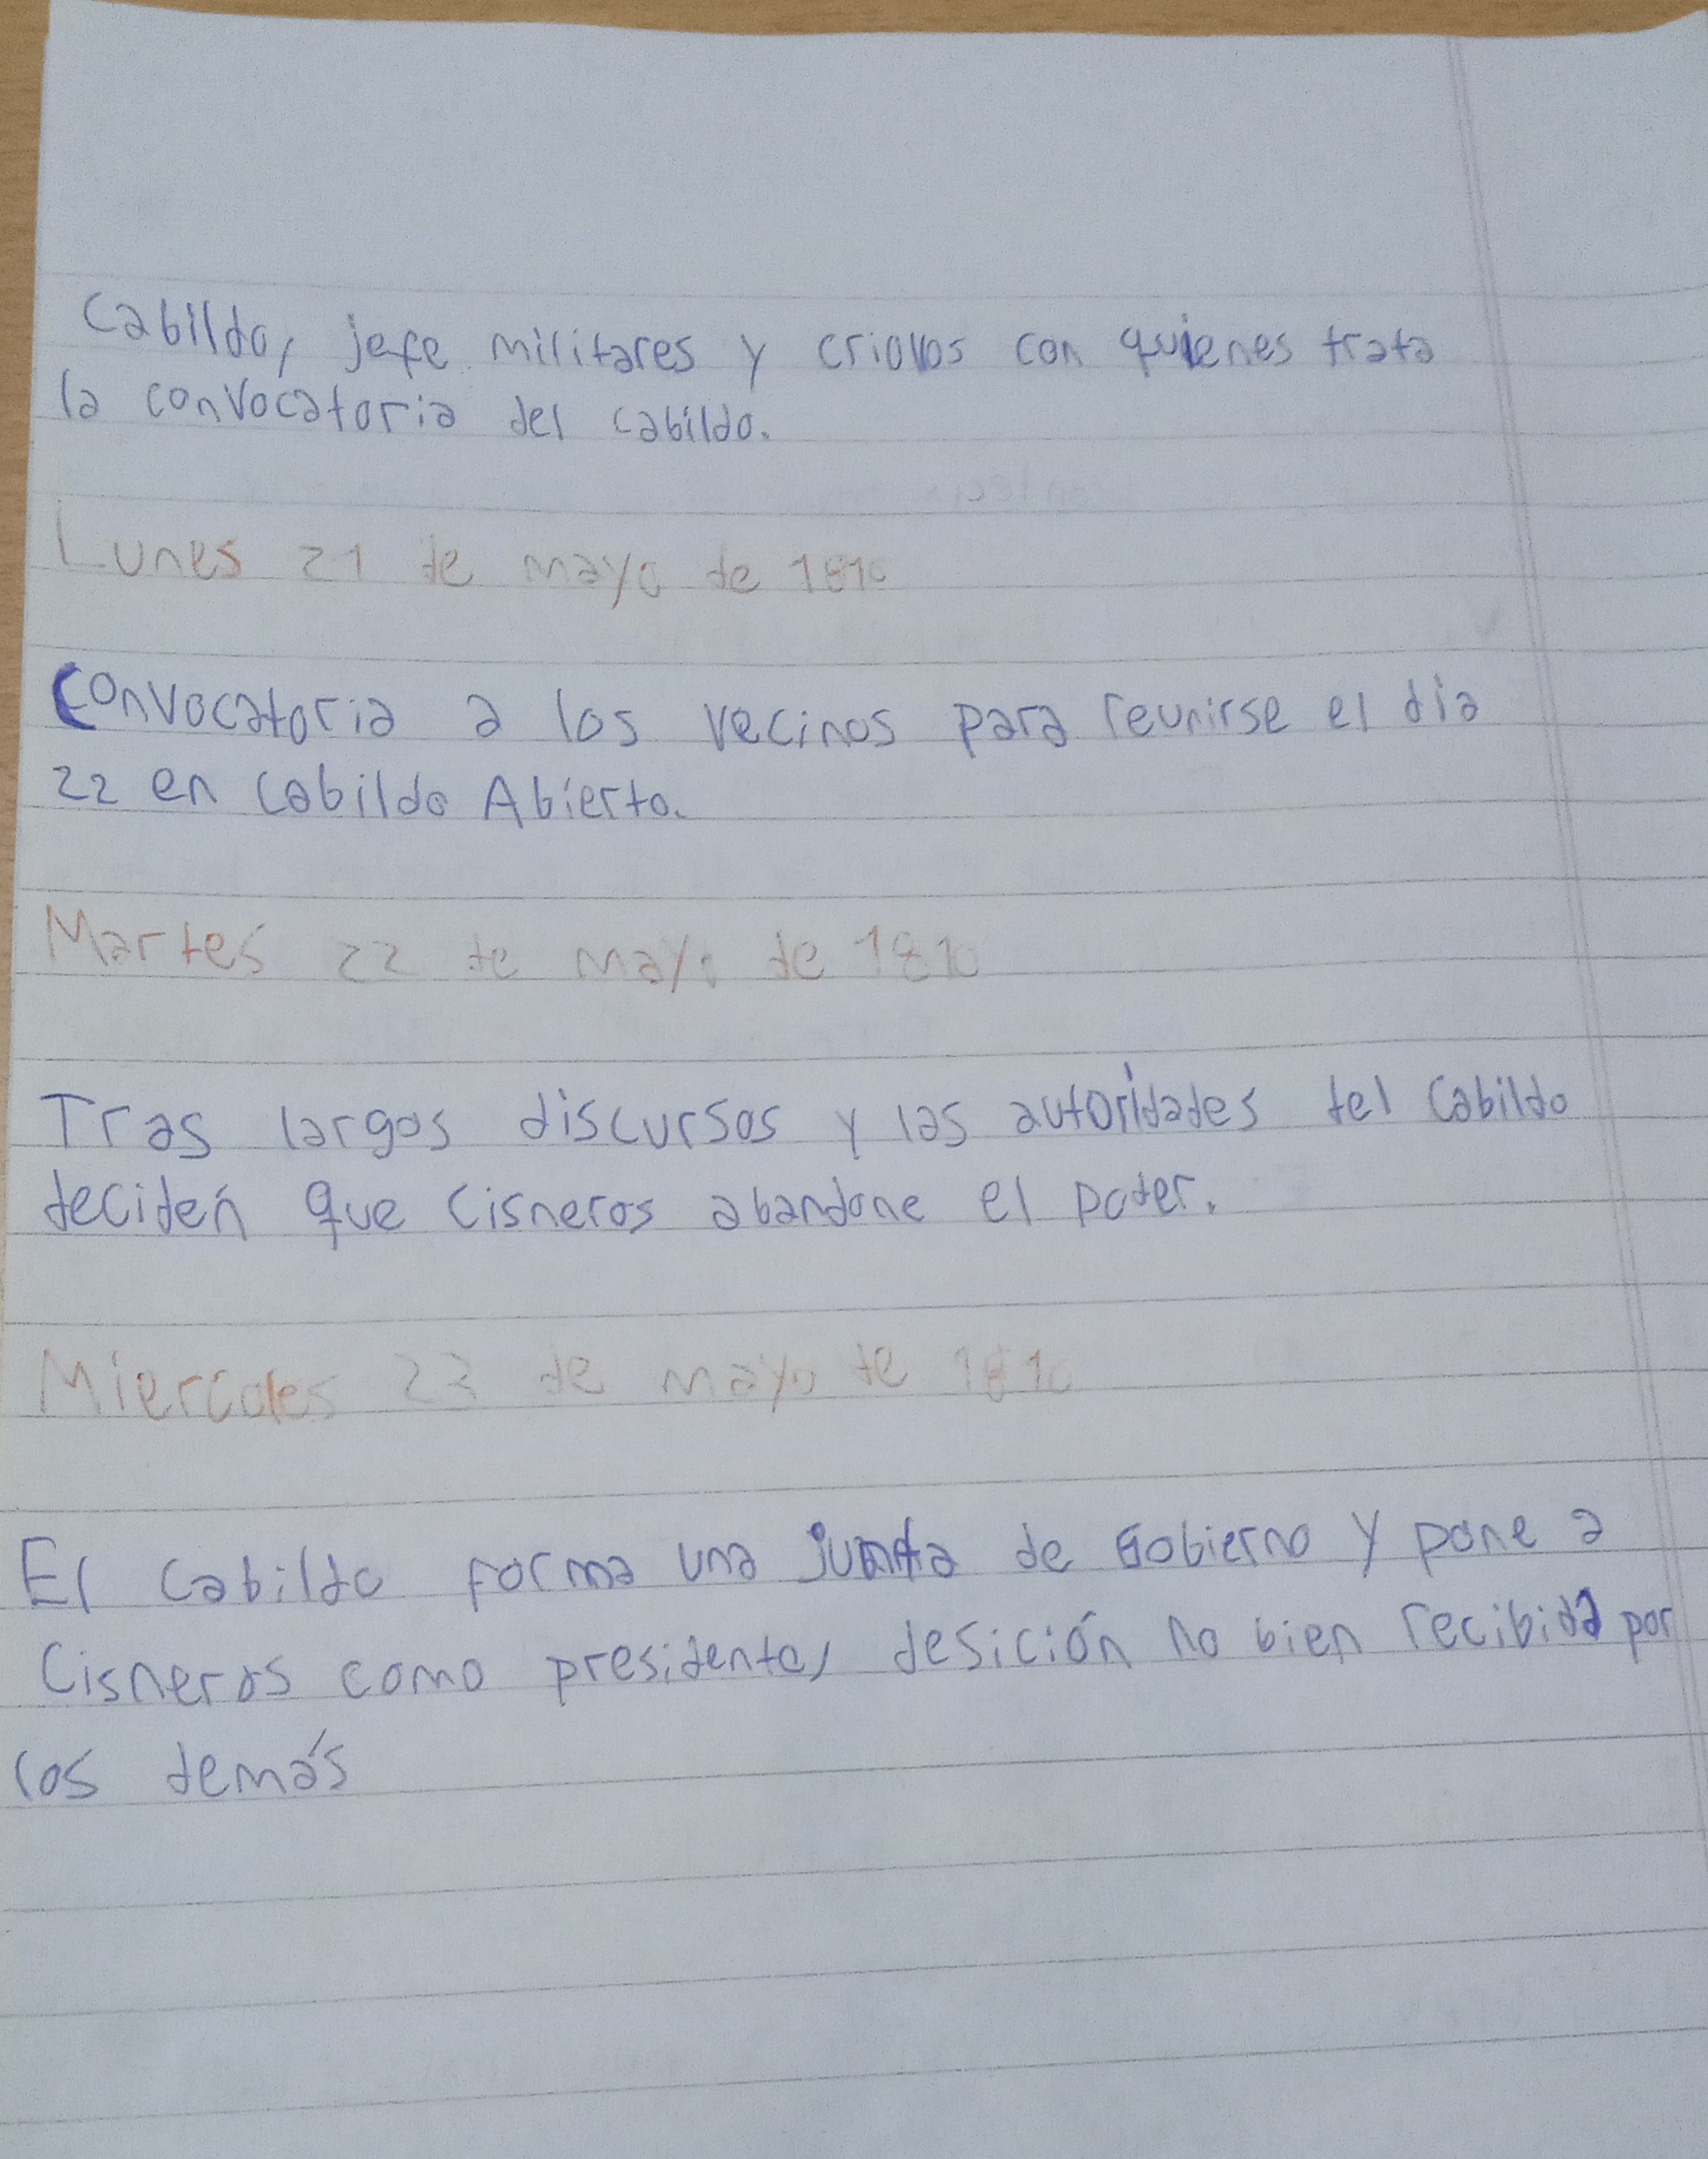 Cabildo, jefe militares y criollos con quienes trata
la convocatoria del cabildo.
Lunes 21 de mayo de 1810
Convocatoria a los vecinos para reunirse el dia
22 en Cabildo Abierto.
Martes 22 de mayo de 1810
Tras largos discursos y las autoridades del Cabildo
deciden que Cisneros abandone el poder.
Miercoles 23 de mayo de 1810
El Cabildo forma una junta de Gobierno y pone a
Cisneros como presidente, desición no bien recibida por
los demás